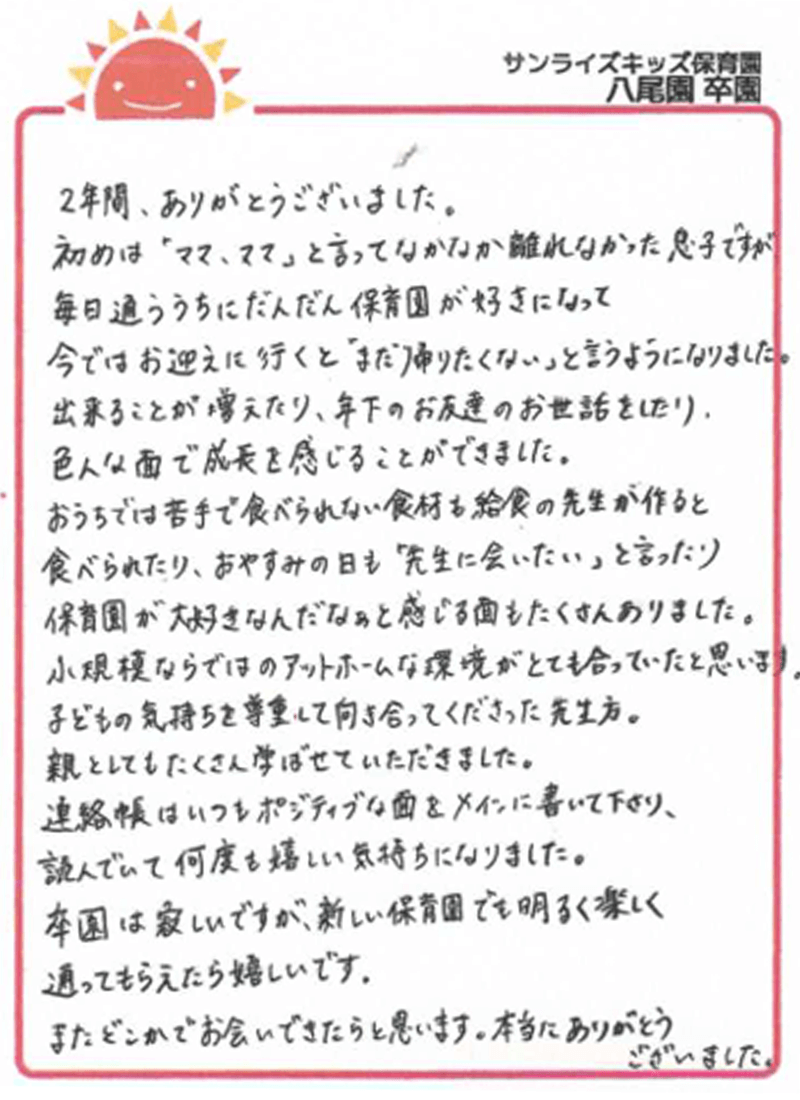 サンライズキッズ保育園
八尾園 卒園
2年間、ありがとうございました。
初めは「ママ、ママ」と言ってなかなか離れなかった息子ですが
毎日通ううちにだんだん保育園が好きになって
今ではお迎えに行くと「まだ帰りたくない」と言うようになりました。
出来ることが増えたり、年下のお友達のお世話をしたり、
色んな面で成長を感じることができました。
おうちでは苦手で食べられない食材も給食の先生が作ると
食べられたり、おやすみの日も「先生に会いたい」と言ったり
保育園が大好きなんだなぁと感じる面もたくさんありました。
小規模ならではのアットホームな環境がとても合っていたと思います。
子どもの気持ちを尊重して向き合ってくださった先生方。
親としてもたくさん学ばせていただきました。
連絡帳はいつもポジティブな面をメインに書いて下さり、
読んでいて何度も嬉しい気持ちになりました。
卒園は寂しいですが、新しい保育園でも明るく楽しく
通ってもらえたら嬉しいです。
またどこかでお会いできたらと思います。本当にありがとう
ございました。